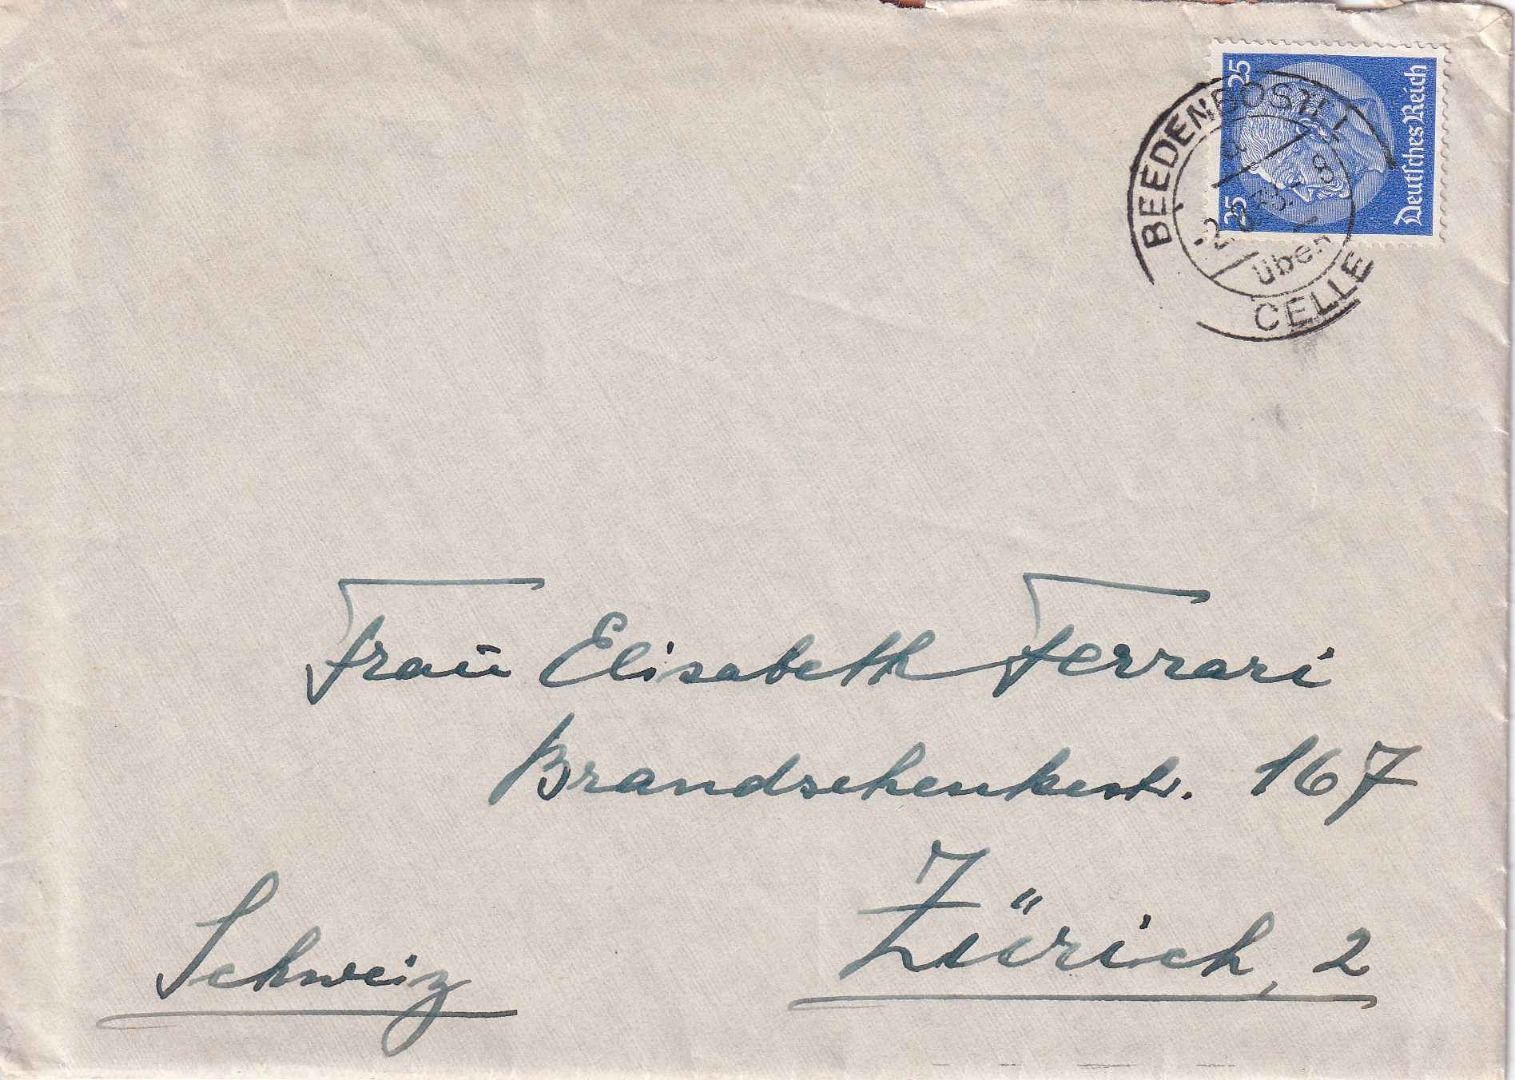 25
Deutsches Reich
25
BEEDENBOSTEL
über
CELLE
Frau Elisabeth Ferrari
Brandschenkestr. 167
Zürich, 2
Schweiz